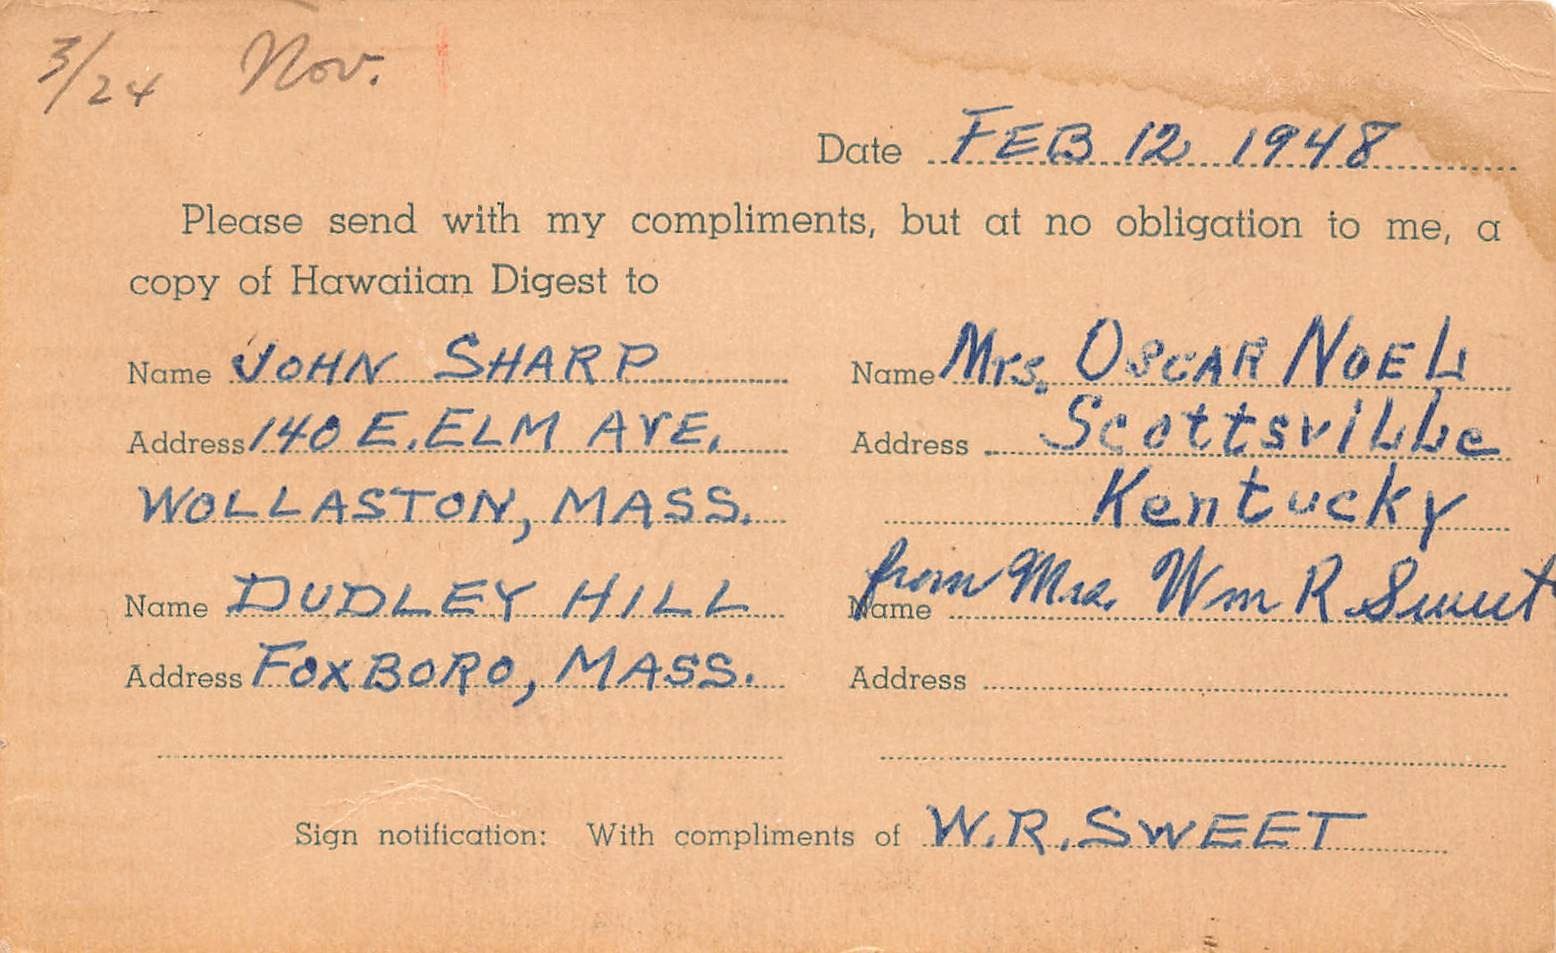 3/24 Nov.
Date FEB 12 1948
Please send with my compliments, but at no obligation to me, a
copy of Hawaiian Digest to
Name JOHN SHARP
Address 140 E. ELM AVE.
WOLLASTON, MASS.
Name DUDLEY HILL
Address FOXBORO, MASS.
Name Mrs. OSCAR NOEL
Address Scottsville
Kentucky
from Mrs. Wm R. Sweet
Name
Address
Sign notification: With compliments of W.R. SWEET